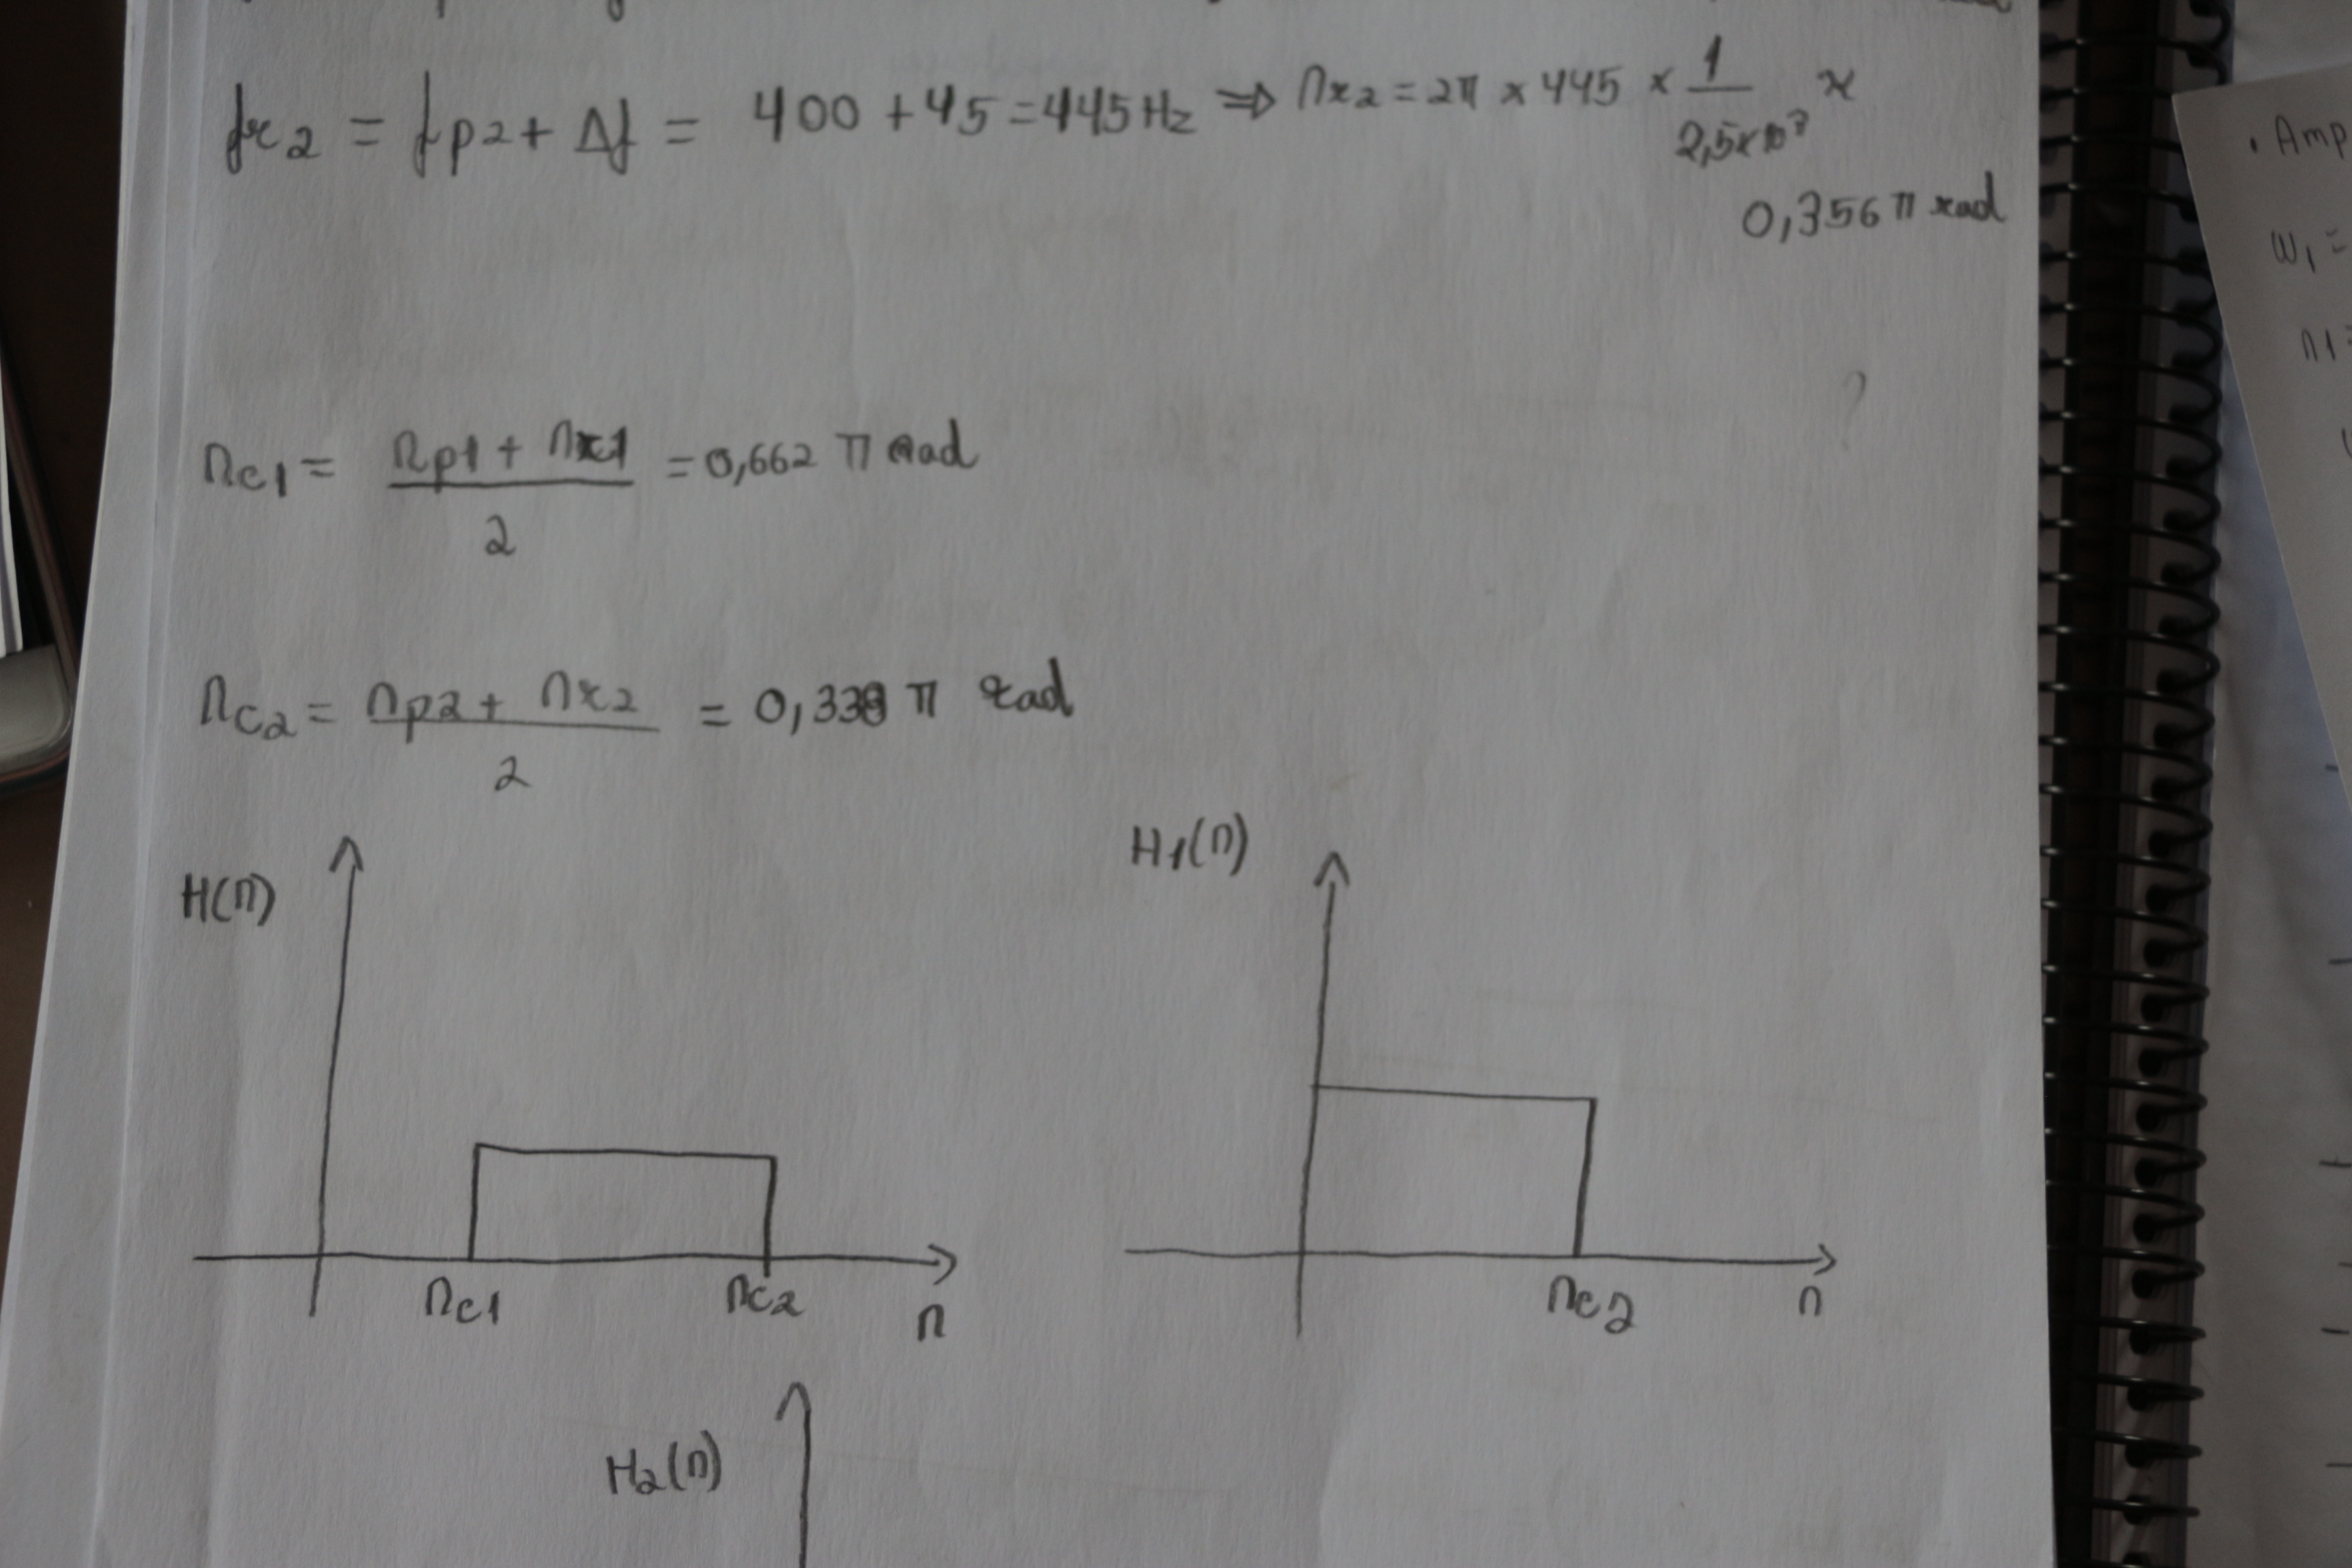 fr2 = fp2 + Δf = 400 + 45 = 445 Hz ⇒ Ωr2 = 2π × 445 × 1/2,5×10³ ≈
0,356 π rad
?
Ωc1 = (Ωp1 + Ωr1)/2 = 0,662 π rad
Ωc2 = (Ωp2 + Ωr2)/2 = 0,338 π rad
H(Ω)
Ωc1
Ωc2
Ω
H1(Ω)
Ωc2
Ω
H2(Ω)
. Amp
W1 =
Ω1 =